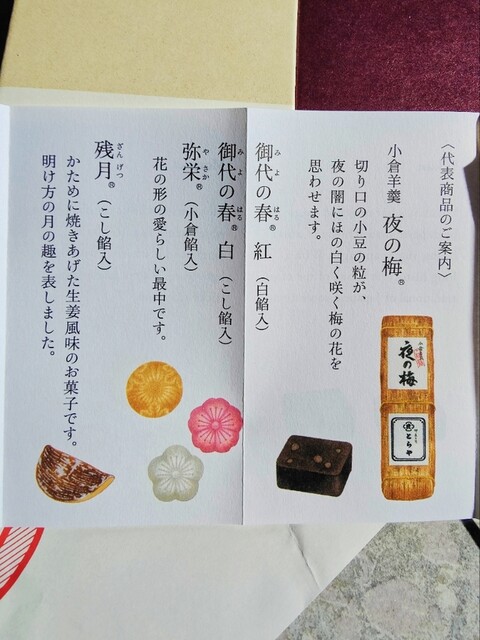 〈代表商品のご案内〉
小倉羊羹 夜の梅®
切り口の小豆の粒が、
夜の闇にほの白く咲く梅の花を
思わせます。
御代の春® 紅 (白餡入)
みよ はる
御代の春® 白 (こし餡入)
みよ はる
弥栄® (小倉餡入)
やさか
花の形の愛らしい最中です。
残月® (こし餡入)
ざんげつ
かために焼きあげた生姜風味のお菓子です。
明け方の月の趣を表しました。
夜の梅
とらや